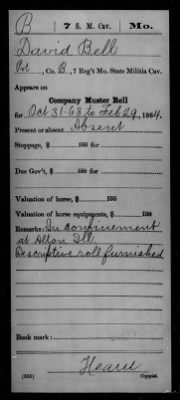 B | 7 S. M. Cav. | Mo.
David Bell
Pvt, Co. B, 7 Reg't Mo. State Militia Cav.
Appears on
Company Muster Roll
for Oct 31-63 to Feb 29, 1864.
Present or absent Absent
Stoppage, $ 100 for
Due Gov't, $ 100 for
Valuation of horse, $ 100
Valuation of horse equipments, $ 100
Remarks: In confinement
at Alton Ill
Descriptive roll furnished
Book mark:
Heard
(358) Copyist.